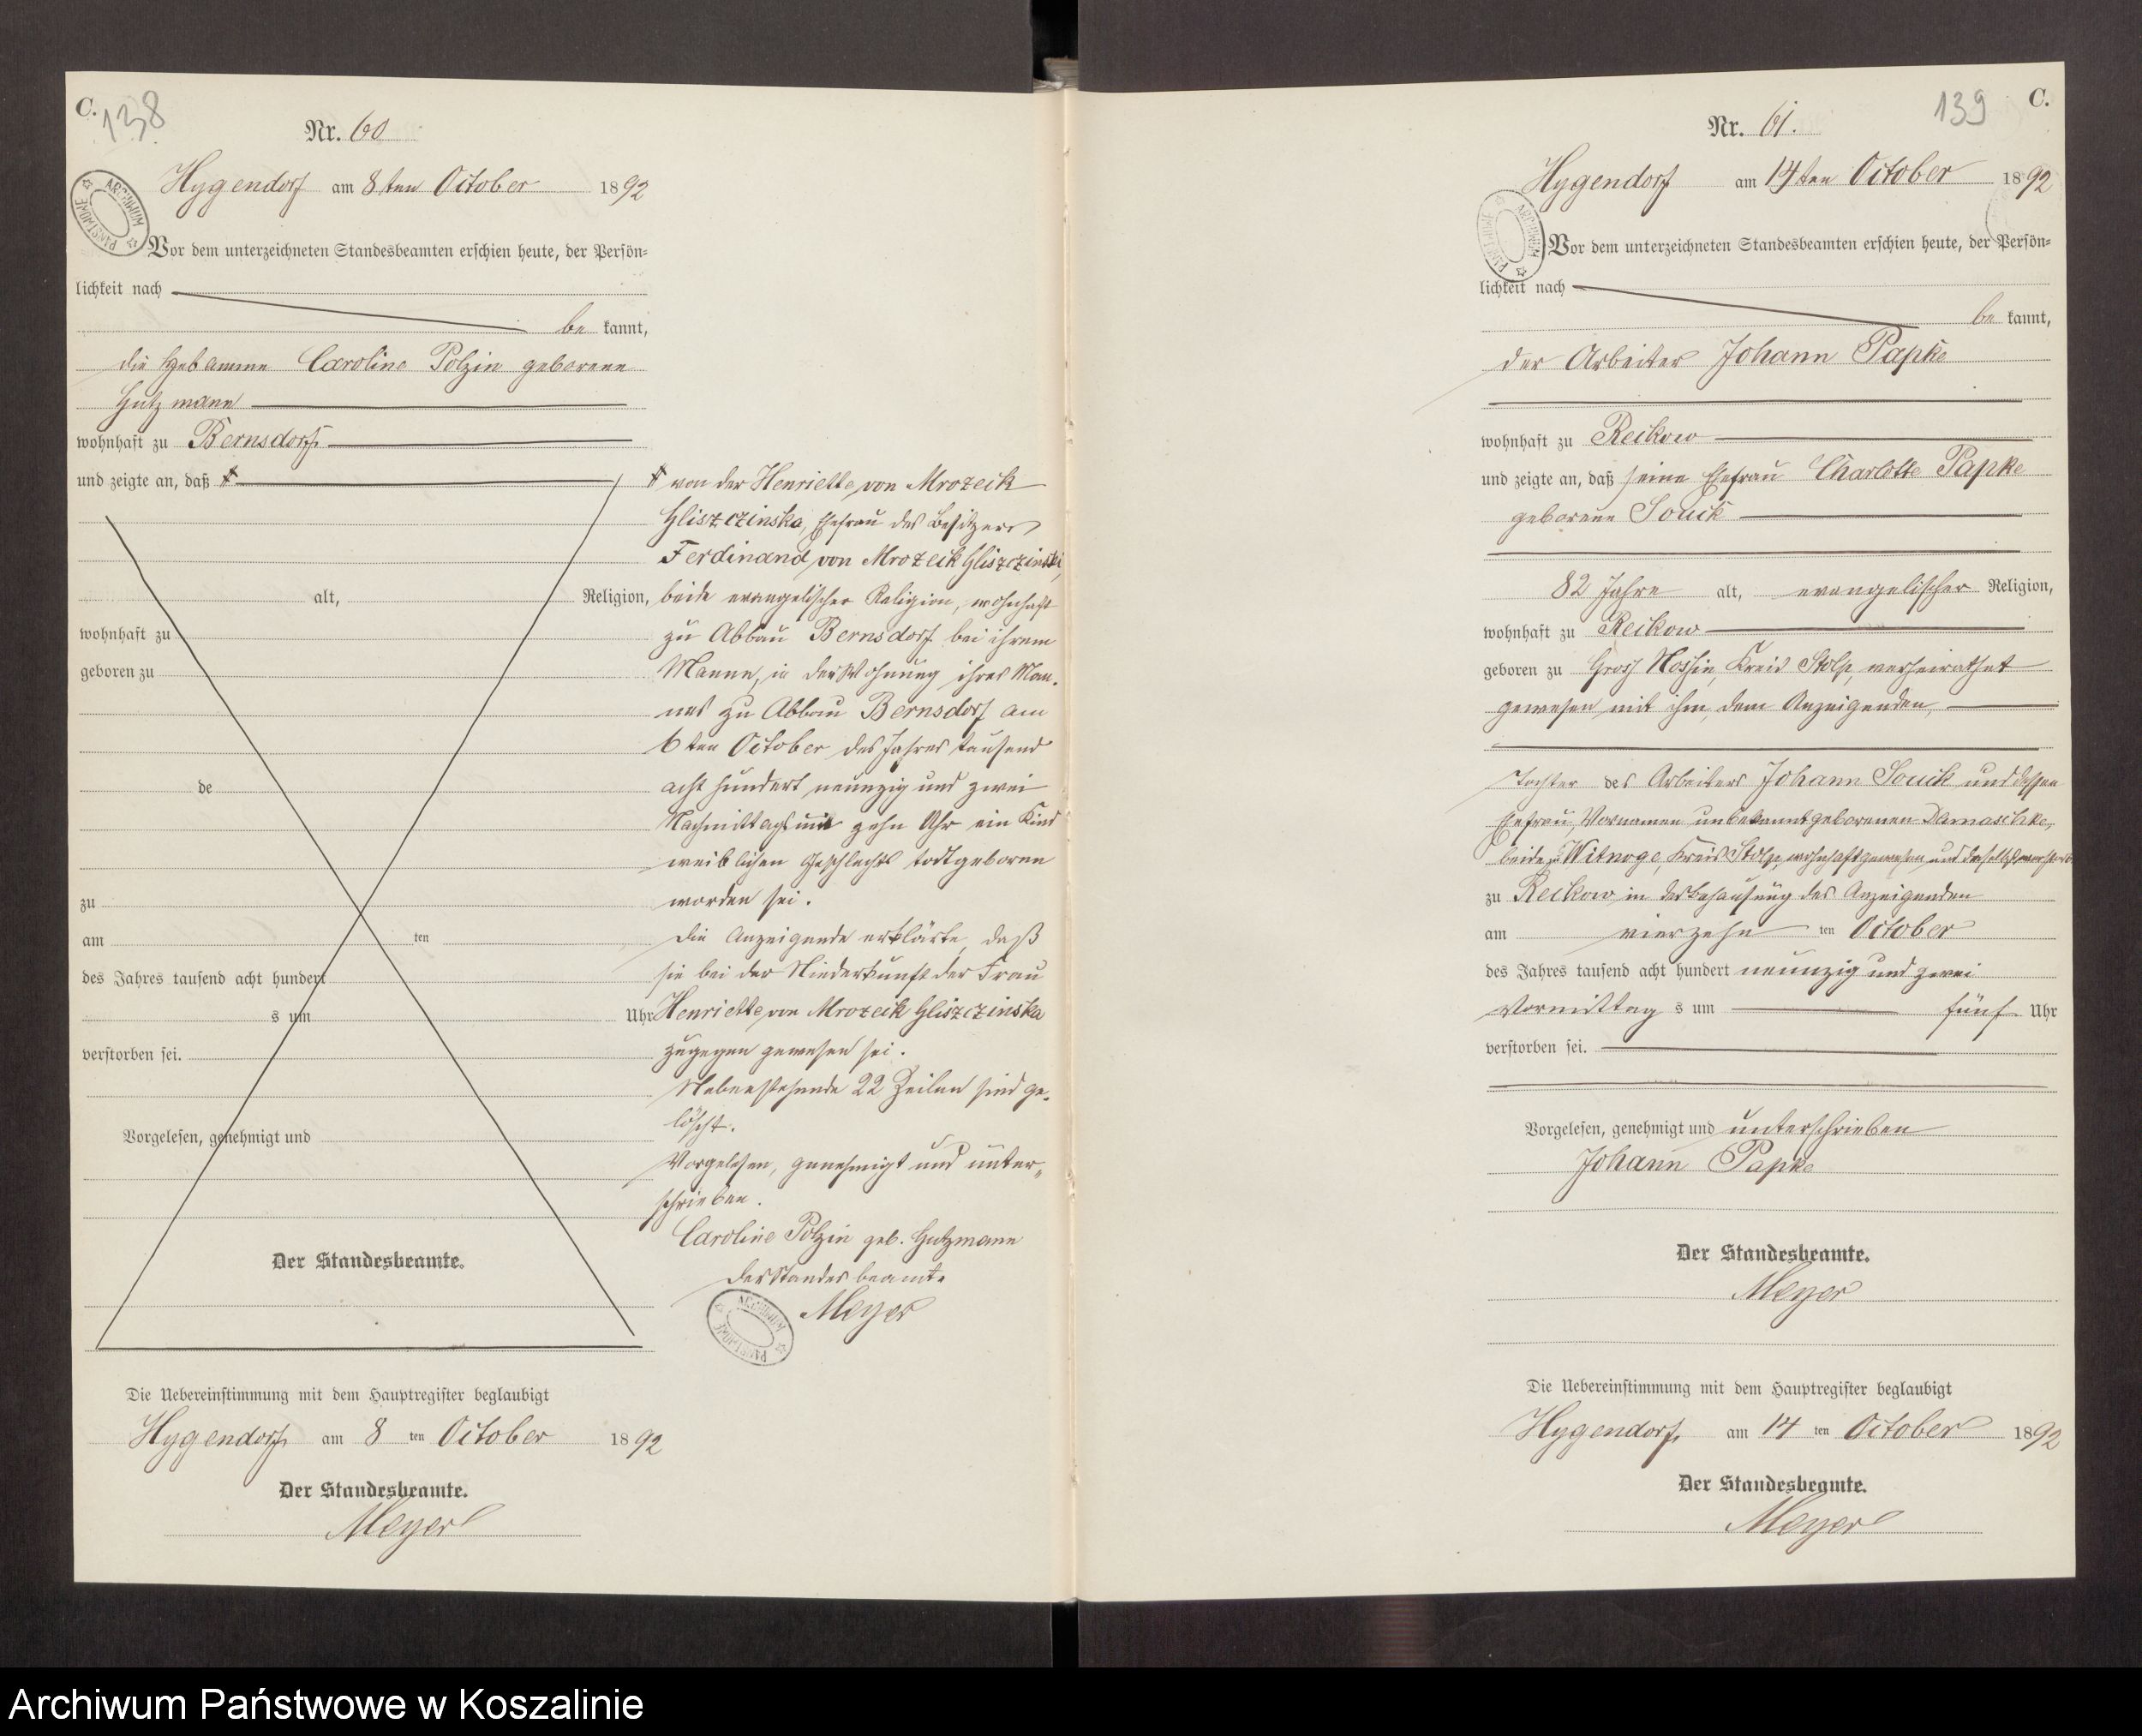 C.
138
Nr. 60
Hygendorf am 8ten October 1892
Vor dem unterzeichneten Standesbeamten erschien heute, der Persön-
lichkeit nach
be kannt,
die Hebamme Caroline Polzin geborene
Gutzmann
wohnhaft zu Bernsdorf
und zeigte an, daß
alt, Religion,
wohnhaft zu
geboren zu
de
zu
am ten
des Jahres tausend acht hundert
s um Uhr
verstorben sei.
Vorgelesen, genehmigt und
Der Standesbeamte.
von der Henriette von Mrozeck
Gliszczinska, Ehefrau des Besitzers
Ferdinand von Mrozeck Gliszczinski,
beide evangelischer Religion, wohnhaft
zu Abbau Bernsdorf bei ihrem
Manne, in der Wohnung ihres Man-
nes zu Abbau Bernsdorf am
6ten October des Jahres tausend
acht hundert neunzig und zwei
Nachmittags um zehn Uhr ein Kind
weiblichen Geschlechts todtgeboren
worden sei.
Die Anzeigende erklärte, daß
sie bei der Niederkunft der Frau
Henriette von Mrozeck Gliszczinska
zugegen gewesen sei.
Nebenstehende 22 Zeilen sind ge-
löscht.
Vorgelesen, genehmigt und unter-
schrieben.
Caroline Polzin geb. Gutzmann
Der Standesbeamte
Meyer
ARCHIWUM PAŃSTWOWE
Die Uebereinstimmung mit dem Hauptregister beglaubigt
Hygendorf am 8 ten October 1892
Der Standesbeamte.
Meyer
139
C.
Nr. 61.
Hygendorf am 14ten October 1892
Vor dem unterzeichneten Standesbeamten erschien heute, der Persön-
lichkeit nach
be kannt,
der Arbeiter Johann Papke
wohnhaft zu Reckow
und zeigte an, daß seine Ehefrau Charlotte Papke
geborene Souck
82 Jahre alt, evangelischer Religion,
wohnhaft zu Reckow
geboren zu Gross Nossin, Kreis Stolp, verheirathet
gewesen mit ihm, dem Anzeigenden,
Tochter des Arbeiters Johann Souck und dessen
Ehefrau, Vornamen unbekannt geborenen Damaschke,
beide zu Wutnoge, Kreis Stolp, wohnhaft gewesen und daselbst
zu Reckow in der Behausung des Anzeigenden
am vierzehn ten October
des Jahres tausend acht hundert neunzig und zwei
Vormittag s um fünf Uhr
verstorben sei.
Vorgelesen, genehmigt und unterschrieben
Johann Papke
Der Standesbeamte.
Meyer
Die Uebereinstimmung mit dem Hauptregister beglaubigt
Hygendorf, am 14 ten October 1892
Der Standesbeamte.
Meyer
Archiwum Państwowe w Koszalinie